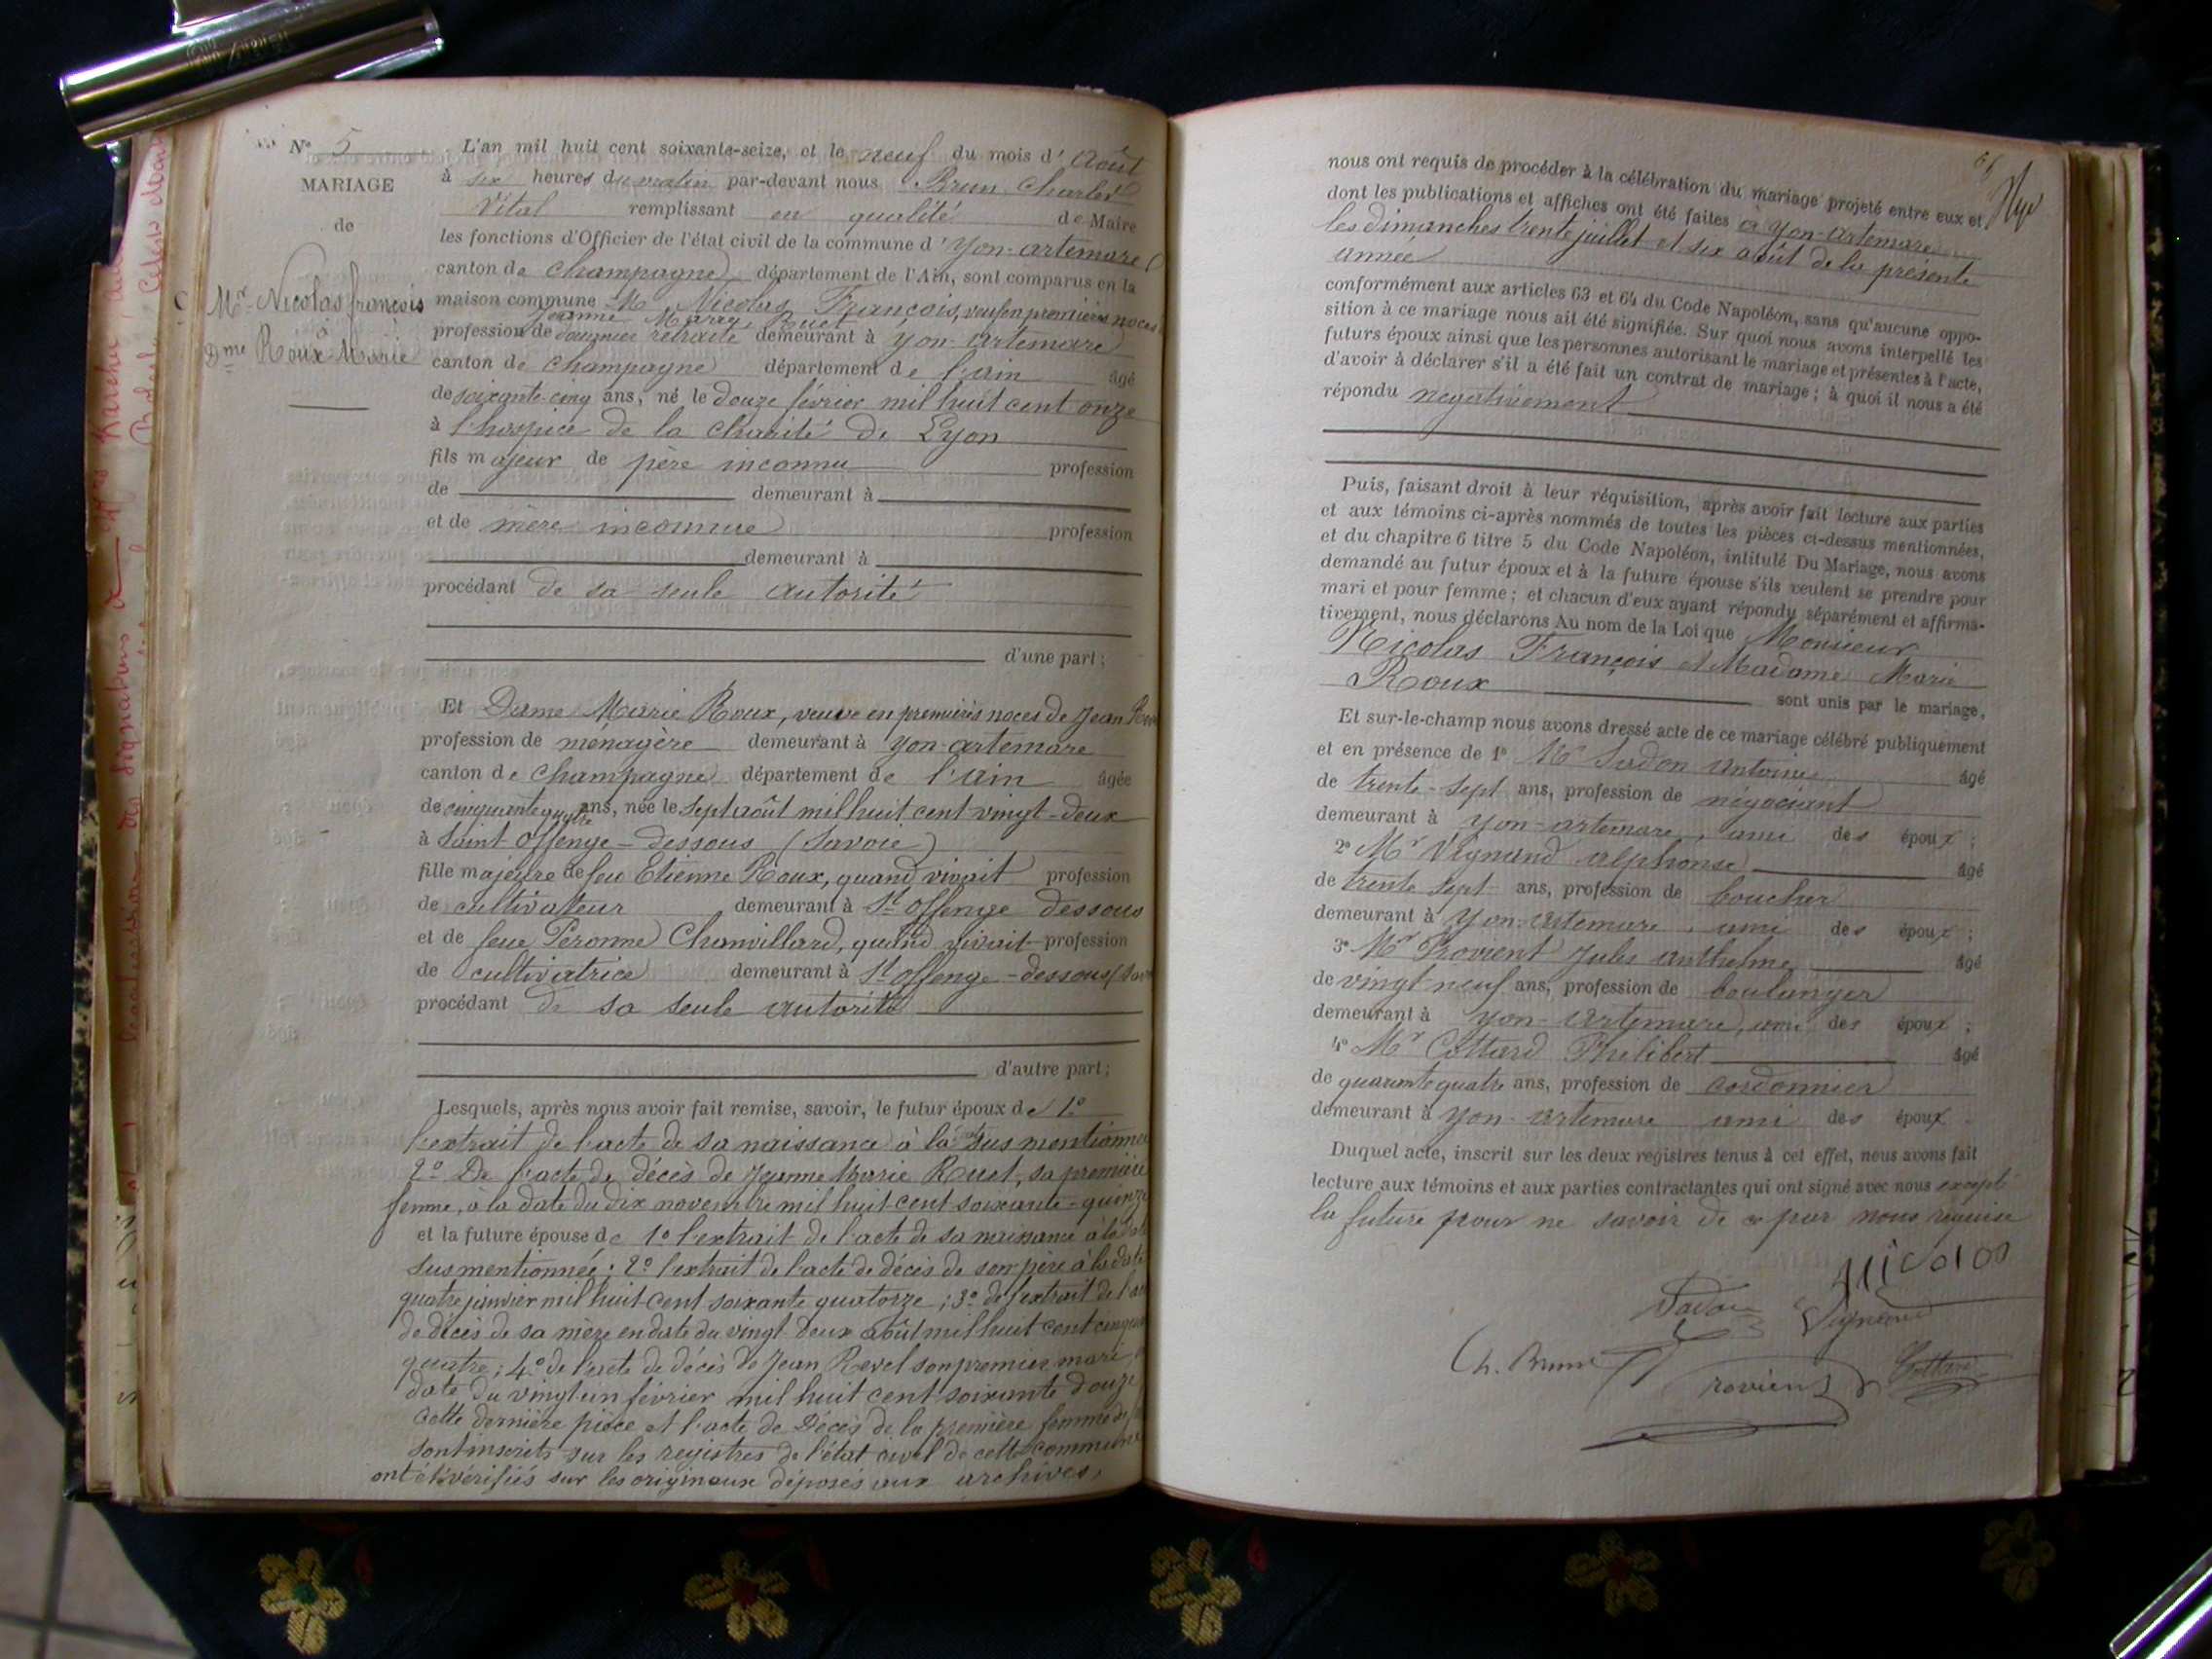 N° 5
MARIAGE
de
Mr Nicolas françois
à
Dme Roux Marie
L'an mil huit cent soixante-seize, et le neuf du mois d'Août
à six heures du matin par-devant nous Brun Charles
Vital remplissant en qualité de Maire
les fonctions d'Officier de l'état civil de la commune d'Yon-artemare
canton de Champagne département de l'Ain, sont comparus en la
maison commune Mr Nicolas François, veuf en premières noces
Jeanne Marie Ruet
profession de douanier retraité demeurant à Yon-artemare
canton de Champagne département de l'ain âgé
de soixante-cinq ans, né le douze février mil huit cent onze
à l'hospice de la Charité de Lyon
fils majeur de père inconnu profession
de demeurant à
et de mère inconnue profession
demeurant à
procédant de sa seule autorité
d'une part;
Et Dame Marie Roux, veuve en premières noces de Jean
profession de ménagère demeurant à Yon-artemare
canton de Champagne département de l'ain âgée
de cinquante quatre ans, née le sept août mil huit cent vingt-deux
à Saint Offenge-dessous (Savoie)
fille majeure de feu Etienne Roux, quand vivait profession
de cultivateur demeurant à St Offenge dessous
et de feue Peronne Chanvillard, quand vivait profession
de cultivatrice demeurant à St Offenge-dessous
procédant de sa seule autorité
d'autre part;
Lesquels, après nous avoir fait remise, savoir, le futur époux de 1°
l'extrait de l'acte de sa naissance à la date sus mentionnée
2° De l'acte de décès de Jeanne Marie Ruet, sa première
femme, à la date du dix novembre mil huit cent soixante-quinze
et la future épouse de 1° l'extrait de l'acte de sa naissance à la date
susmentionnée; 2° l'extrait de l'acte de décès de son père à la date
quatre janvier mil huit cent soixante quatorze; 3° de l'extrait de l'acte
de décès de sa mère en date du vingt-deux août mil huit cent cinquante
quatre; 4° de l'acte de décès de Jean Revel son premier mari
date du vingt-un février mil huit cent soixante douze
cette dernière pièce et l'acte de Décès de la première femme
sont inscrits sur les registres de l'état civil de cette commune
ont été vérifiés sur les originaux déposés aux archives,
nous ont requis de procéder à la célébration du mariage projeté entre eux et
dont les publications et affiches ont été faites à Yon-artemare
les dimanches trente juillet et six août de la présente
année
conformément aux articles 63 et 64 du Code Napoléon, sans qu'aucune oppo-
sition à ce mariage nous ait été signifiée. Sur quoi nous avons interpellé les
futurs époux ainsi que les personnes autorisant le mariage et présentes à l'acte,
d'avoir à déclarer s'il a été fait un contrat de mariage; à quoi il nous a été
répondu négativement
Puis, faisant droit à leur réquisition, après avoir fait lecture aux parties
et aux témoins ci-après nommés de toutes les pièces ci-dessus mentionnées,
et du chapitre 6 titre 5 du Code Napoléon, intitulé Du Mariage, nous avons
demandé au futur époux et à la future épouse s'ils veulent se prendre pour
mari et pour femme; et chacun d'eux ayant répondu séparément et affirma-
tivement, nous déclarons Au nom de la Loi que Monsieur
Nicolas François et Madame Marie
Roux sont unis par le mariage,
Et sur-le-champ nous avons dressé acte de ce mariage célébré publiquement
et en présence de 1° Mr Sadon Antoine âgé
de trente-sept ans, profession de négociant
demeurant à Yon-artemare, ami des époux;
2° Mr Vignand alphonse âgé
de trente sept ans, profession de boucher
demeurant à Yon-artemare, ami des époux;
3° Mr Provient Jules anthelme âgé
de vingt neuf ans, profession de boulanger
demeurant à Yon-artemare, ami des époux;
4° Mr Cottard Philibert âgé
de quarante quatre ans, profession de cordonnier
demeurant à Yon-artemare ami des époux
Duquel acte, inscrit sur les deux registres tenus à cet effet, nous avons fait
lecture aux témoins et aux parties contractantes qui ont signé avec nous excepté
la future pour ne savoir de ce par nous requise
Nicolas
Sadon Vignand
Ch. Brun Provient Cottard